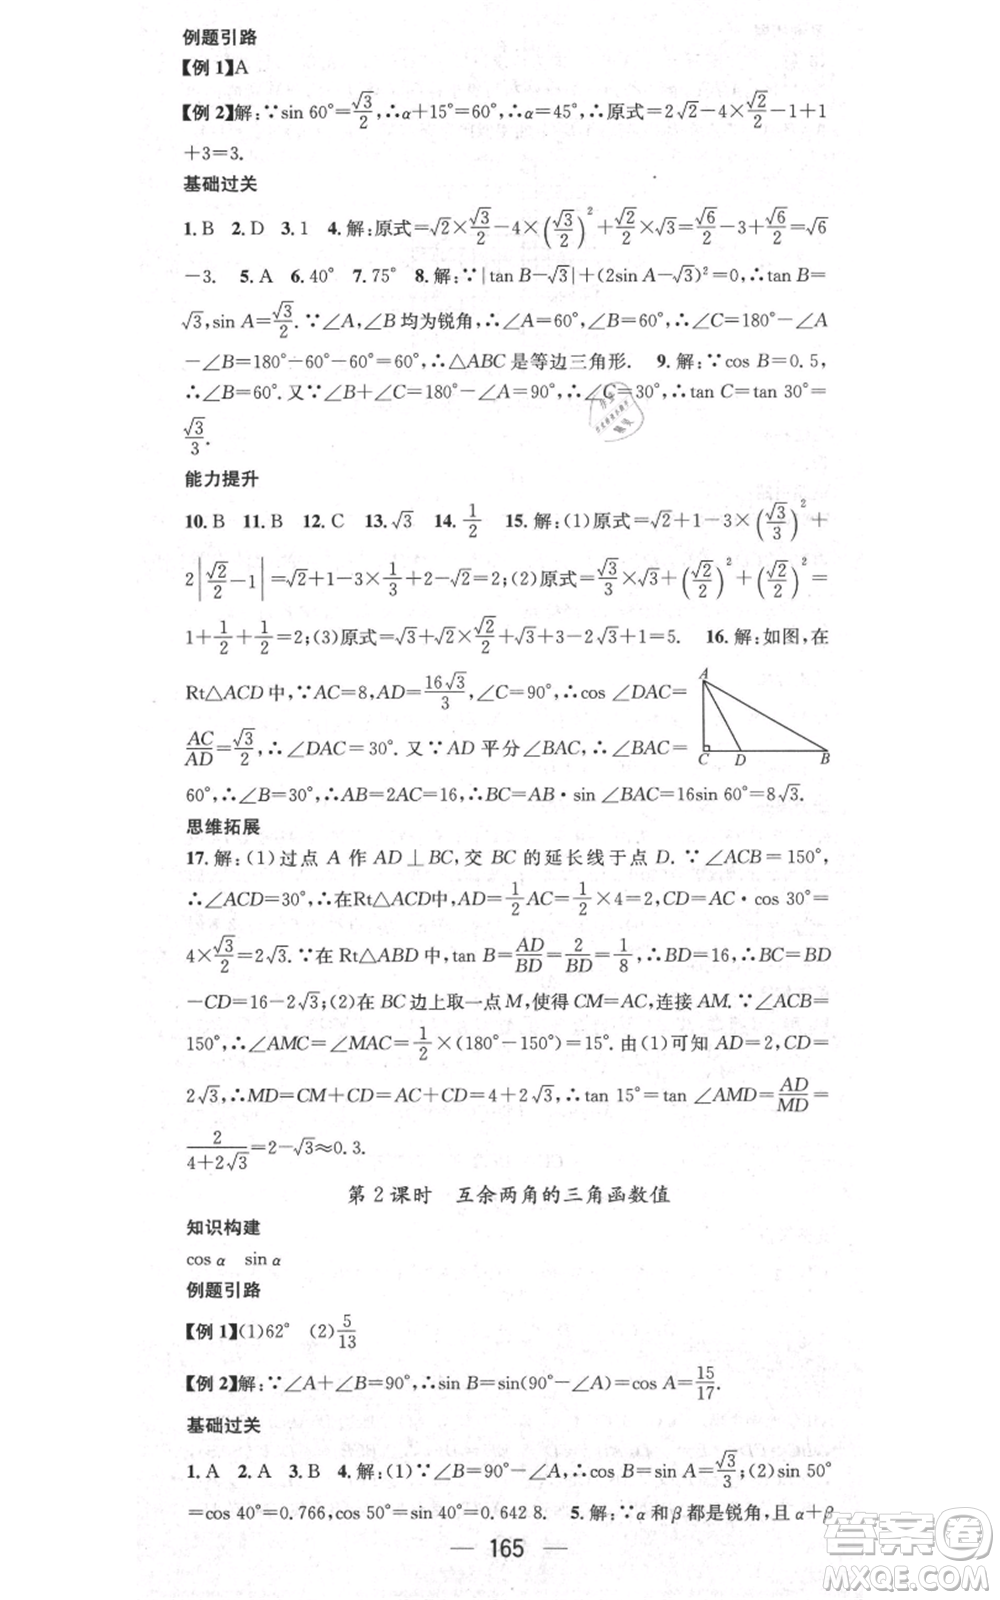 例题引路
【例 1】A
【例 2】解:∵sin 60°=√3/2,∴α+15°=60°,∴α=45°,∴原式=2√2-4×√2/2-1+1
+3=3.
基础过关
1. B 2. D 3. 1 4. 解:原式=√2×√3/2-4×(√3/2)²+√2/2×√3=√6/2-3+√6/2=√6
-3. 5. A 6. 40° 7. 75° 8. 解:∵|tan B-√3|+(2sin A-√3)²=0,∴tan B=
√3,sin A=√3/2.∵∠A,∠B 均为锐角,∴∠A=60°,∠B=60°,∴∠C=180°-∠A
-∠B=180°-60°-60°=60°,∴△ABC 是等边三角形. 9. 解:∵cos B=0.5,
∴∠B=60°.又∵∠B+∠C=180°-∠A=90°,∴∠C=30°,∴tan C=tan 30°=
√3/3.
能力提升
10. B 11. B 12. C 13. √3 14. 1/2 15. 解:(1)原式=√2+1-3×(√3/3)²+
2|√2/2-1|=√2+1-3×1/3+2-√2=2;(2)原式=√3/3×√3+(√2/2)²+(√2/2)²=
1+1/2+1/2=2;(3)原式=√3+√2×√2/2+√3+3-2√3+1=5. 16. 解:如图,在
Rt△ACD 中,∵AC=8,AD=16√3/3,∠C=90°,∴cos ∠DAC=
AC/AD=√3/2,∴∠DAC=30°.又∵AD 平分∠BAC,∴∠BAC=
A
C D B
60°,∴∠B=30°,∴AB=2AC=16,∴BC=AB·sin ∠BAC=16sin 60°=8√3.
思维拓展
17. 解:(1)过点 A 作 AD⊥BC,交 BC 的延长线于点 D.∵∠ACB=150°,
∴∠ACD=30°,∴在Rt△ACD中,AD=1/2AC=1/2×4=2,CD=AC·cos 30°=
4×√3/2=2√3.∵在 Rt△ABD 中,tan B=AD/BD=2/BD=1/8,∴BD=16,∴BC=BD
-CD=16-2√3;(2)在 BC边上取一点 M,使得 CM=AC,连接 AM.∵∠ACB=
150°,∴∠AMC=∠MAC=1/2×(180°-150°)=15°.由(1)可知 AD=2,CD=
2√3,∴MD=CM+CD=AC+CD=4+2√3,∴tan 15°=tan ∠AMD=AD/MD=
2/(4+2√3)=2-√3≈0.3.
第 2 课时 互余两角的三角函数值
知识构建
cos α sin α
例题引路
【例 1】(1)62° (2)5/13
【例 2】解:∵∠A+∠B=90°,∴sin B=sin(90°-∠A)=cos A=15/17.
基础过关
1. A 2. A 3. B 4. 解:(1)∵∠B=90°-∠A,∴cos B=sin A=√3/3;(2)sin 50°
=cos 40°=0.766,cos 50°=sin 40°=0.642 8. 5. 解:∵α 和 β 都是锐角,且 α+β
— 165 —
答案圈
MXQE.COM